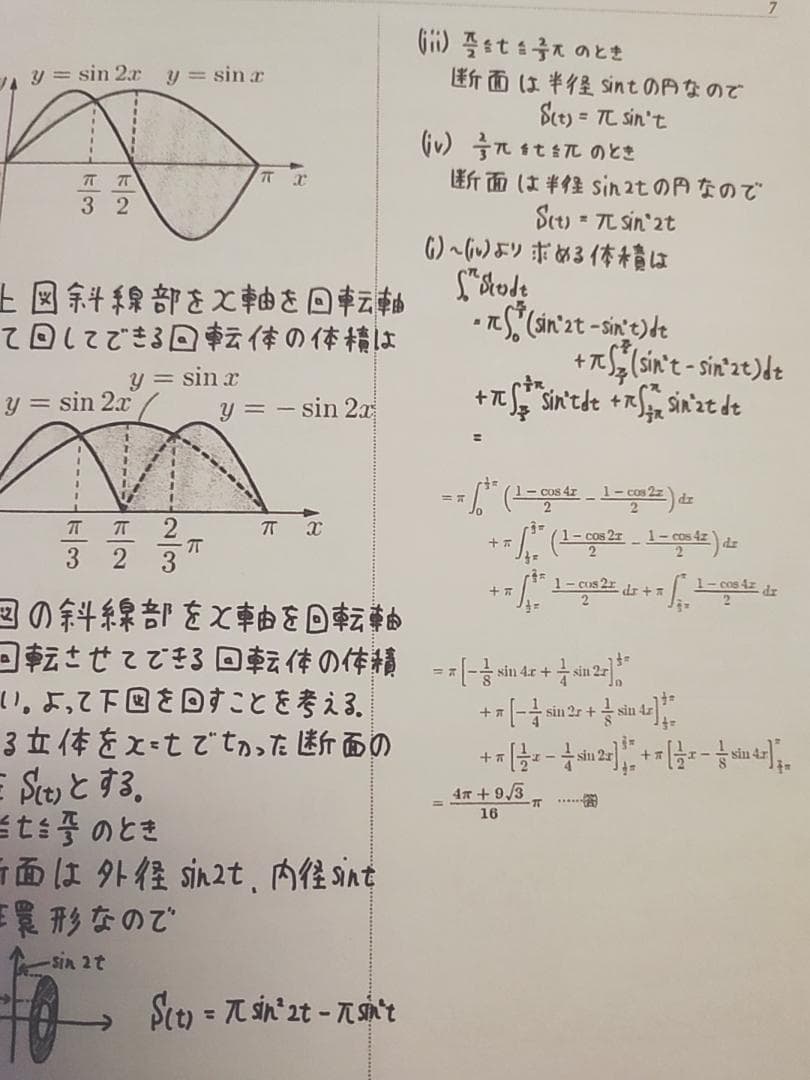 7
y
y = sin 2x
y = sin x
π/3
π/2
π
x
上図斜線部をx軸を回転軸
て回してできる回転体の体積は
y = sin x
y = sin 2x
y = − sin 2x
π/3
π/2
2/3 π
π
x
図の斜線部をx軸を回転軸
回転させてできる回転体の体積
い。よって下図を回すことを考える。
る立体をx=tでtかった断面の
S(t)とする。
≦t≦π/3 のとき
断面は外径 sin2t、内径sint
環形なので
sin 2t
S(t) = πsin²2t − πsin²t
(iii) π/2 ≦ t ≦ 2/3π のとき
断面は半径 sintの円なので
S(t) = π sin²t
(iv) 2/3π ≦ t ≦ π のとき
断面は半径 sin2tの円なので
S(t) = π sin²2t
(i)〜(iv)より求める体積は
∫₀^π S(t)dt
= π∫₀^{π/3} (sin²2t − sin²t)dt
+ π∫_{π/3}^{π/2} (sin²t − sin²2t)dt
+ π∫_{π/2}^{2/3π} sin²tdt + π∫_{2/3π}^{π} sin²2t dt
=
= π∫₀^{1/3π} ((1−cos 4x)/2 − (1−cos 2x)/2) dx
+ π∫_{1/3π}^{2/3π} ((1−cos 2x)/2 − (1−cos 4x)/2) dx
+ π∫_{1/2π}^{2/3π} (1−cos 2x)/2 dx + π∫_{2/3π}^{π} (1−cos 4x)/2 dx
= π[−1/8 sin 4x + 1/4 sin 2x]₀^{1/3π}
+ π[−1/4 sin 2x + 1/8 sin 4x]_{1/3π}^{1/2π}
+ π[1/2 x − 1/4 sin 2x]_{1/2π}^{2/3π} + π[1/2 x − 1/8 sin 4x]_{2/3π}^{π}
= (4π + 9√3)/16 π ……答